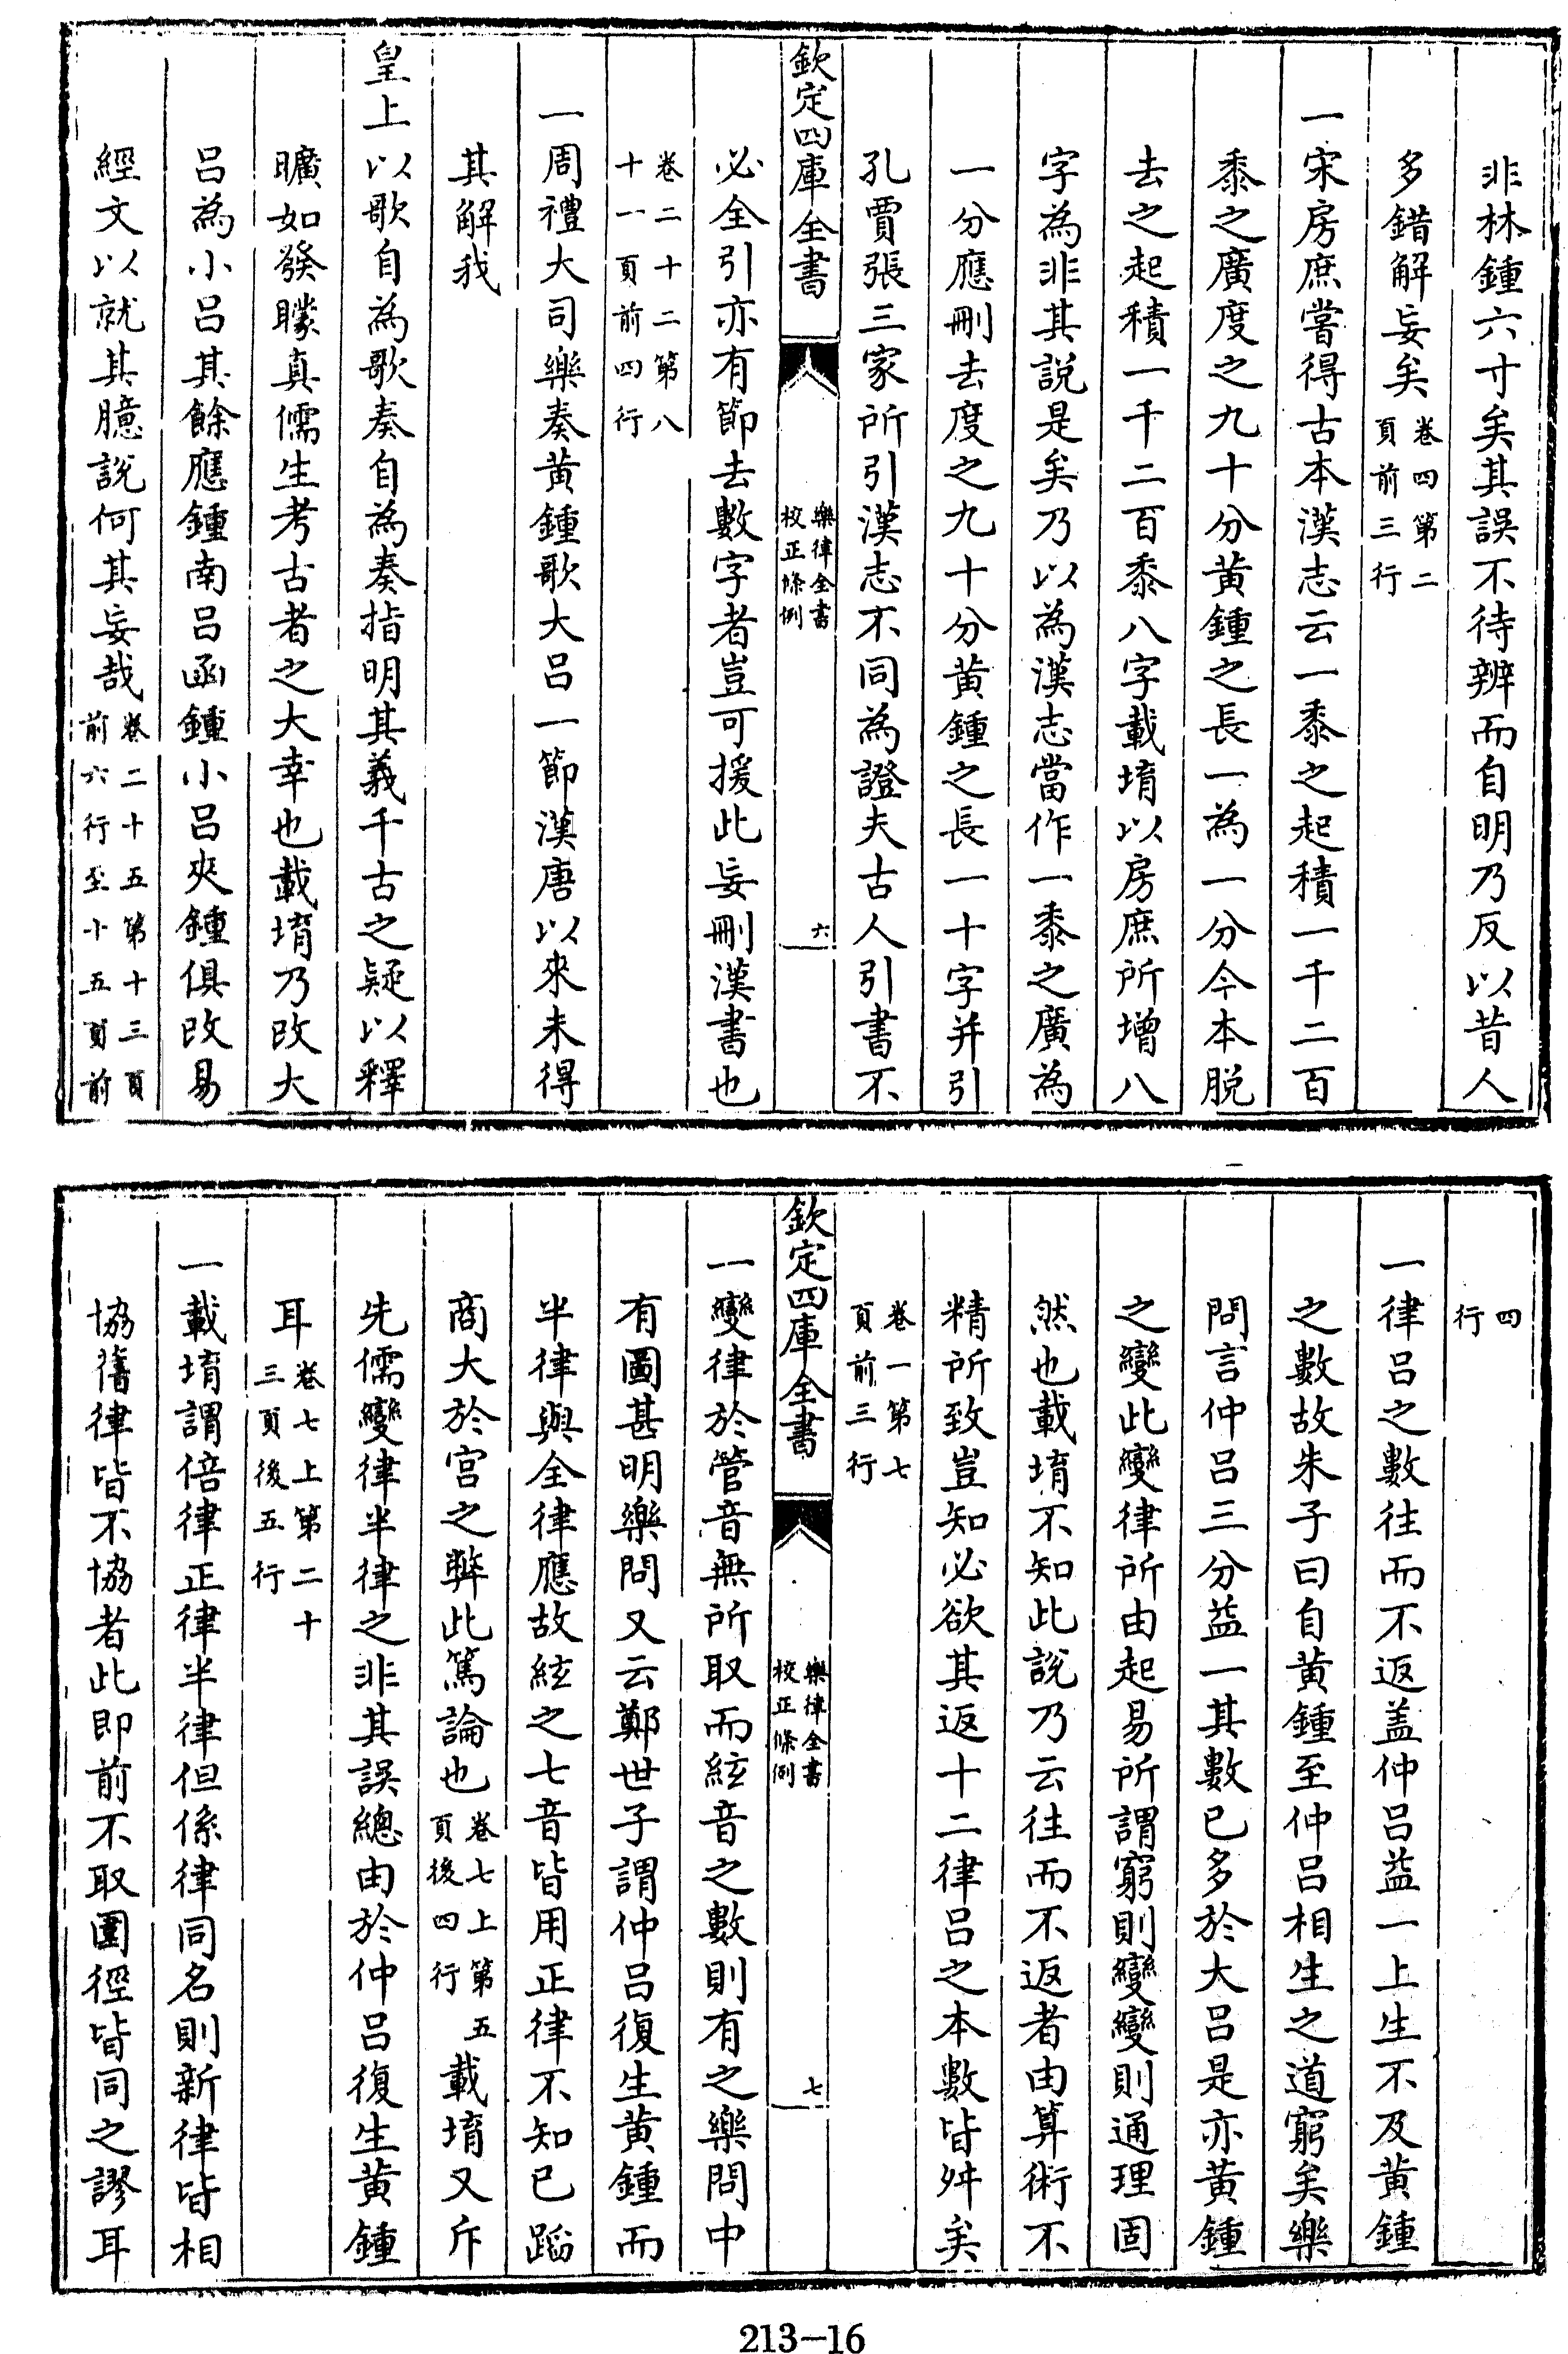 非林鍾六寸矣其誤不待辨而自明乃反以昔人
多錯解妄矣卷四第二頁前三行
一宋房庶嘗得古本漢志云一黍之起積一千二百
黍之廣度之九十分黃鍾之長一為一分今本脫
去之起積一千二百黍八字載堉以房庶所增八
字為非其說是矣乃以為漢志當作一黍之廣為
一分應刪去度之九十分黃鍾之長一十字并引
孔賈張三家所引漢志不同為證夫古人引書不
欽定四庫全書
樂律全書
校正條例
六
必全引亦有節去數字者豈可援此妄刪漢書也
卷二十二第八
十一頁前四行
一周禮大司樂奏黃鍾歌大呂一節漢唐以來未得
其解我
皇上以歌自為歌奏自為奏指明其義千古之疑以釋
曠如發矇真儒生考古者之大幸也載堉乃改大
呂為小呂其餘應鍾南呂函鍾小呂夾鍾俱改易
經文以就其臆說何其妄哉卷二十五第十三頁前六行至十五頁前
四行
一律呂之數往而不返盖仲呂益一上生不及黃鍾
之數故朱子曰自黃鍾至仲呂相生之道窮矣樂
問言仲呂三分益一其數已多於大呂是亦黃鍾
之變此變律所由起易所謂窮則變變則通理固
然也載堉不知此說乃云往而不返者由算術不
精所致豈知必欲其返十二律呂之本數皆舛矣
卷一第七
頁前三行
欽定四庫全書
樂律全書
校正條例
七
一變律於管音無所取而絃音之數則有之樂問中
有圖甚明樂問又云鄭世子謂仲呂復生黃鍾而
半律與全律應故絃之七音皆用正律不知已蹈
商大於宫之弊此篤論也卷七上第五頁後四行載堉又斥
先儒變律半律之非其誤總由於仲呂復生黃鍾
耳卷七上第二十三頁後五行
一載堉謂倍律正律半律但係律同名則新律皆相
協舊律皆不協者此即前不取圍徑皆同之謬耳
213-16